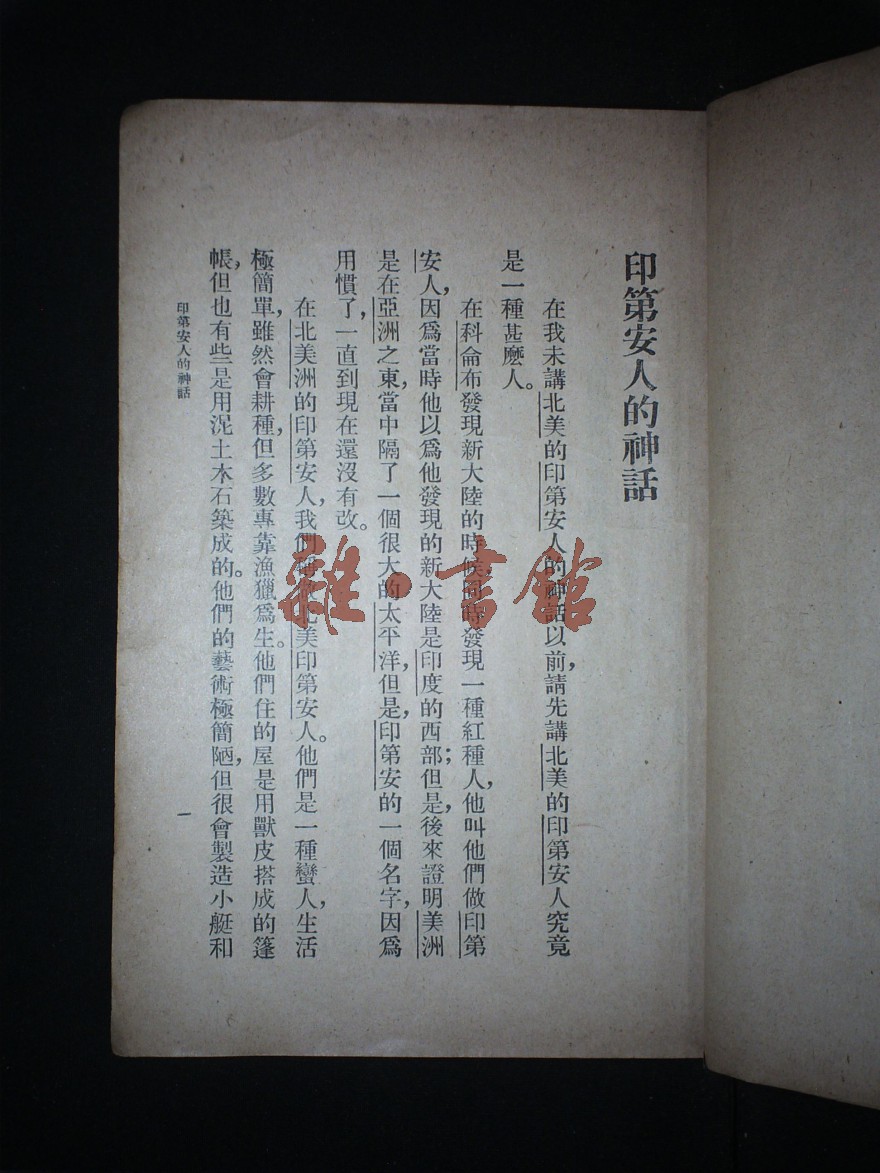 印第安人的神話
在我未講北美的印第安人的神話以前，請先講北美的印第安人究竟
是一種甚麼人。
在科侖布發現新大陸的時候同時發現一種紅種人，他叫他們做印第
安人，因爲當時他以爲他發現的新大陸是印度的西部；但是，後來證明美洲
是在亞洲之東，當中隔了一個很大的太平洋，但是，印第安的一個名字，因爲
用慣了，一直到現在還沒有改。
在北美洲的印第安人，我們 北美印第安人。他們是一種蠻人，生活
極簡單，雖然會耕種，但多數專靠漁獵爲生。他們住的屋是用獸皮搭成的篷
帳，但也有些是用泥土木石築成的。他們的藝術極簡陋，但很會製造小艇和
印第安人的神話
一
雜·書館